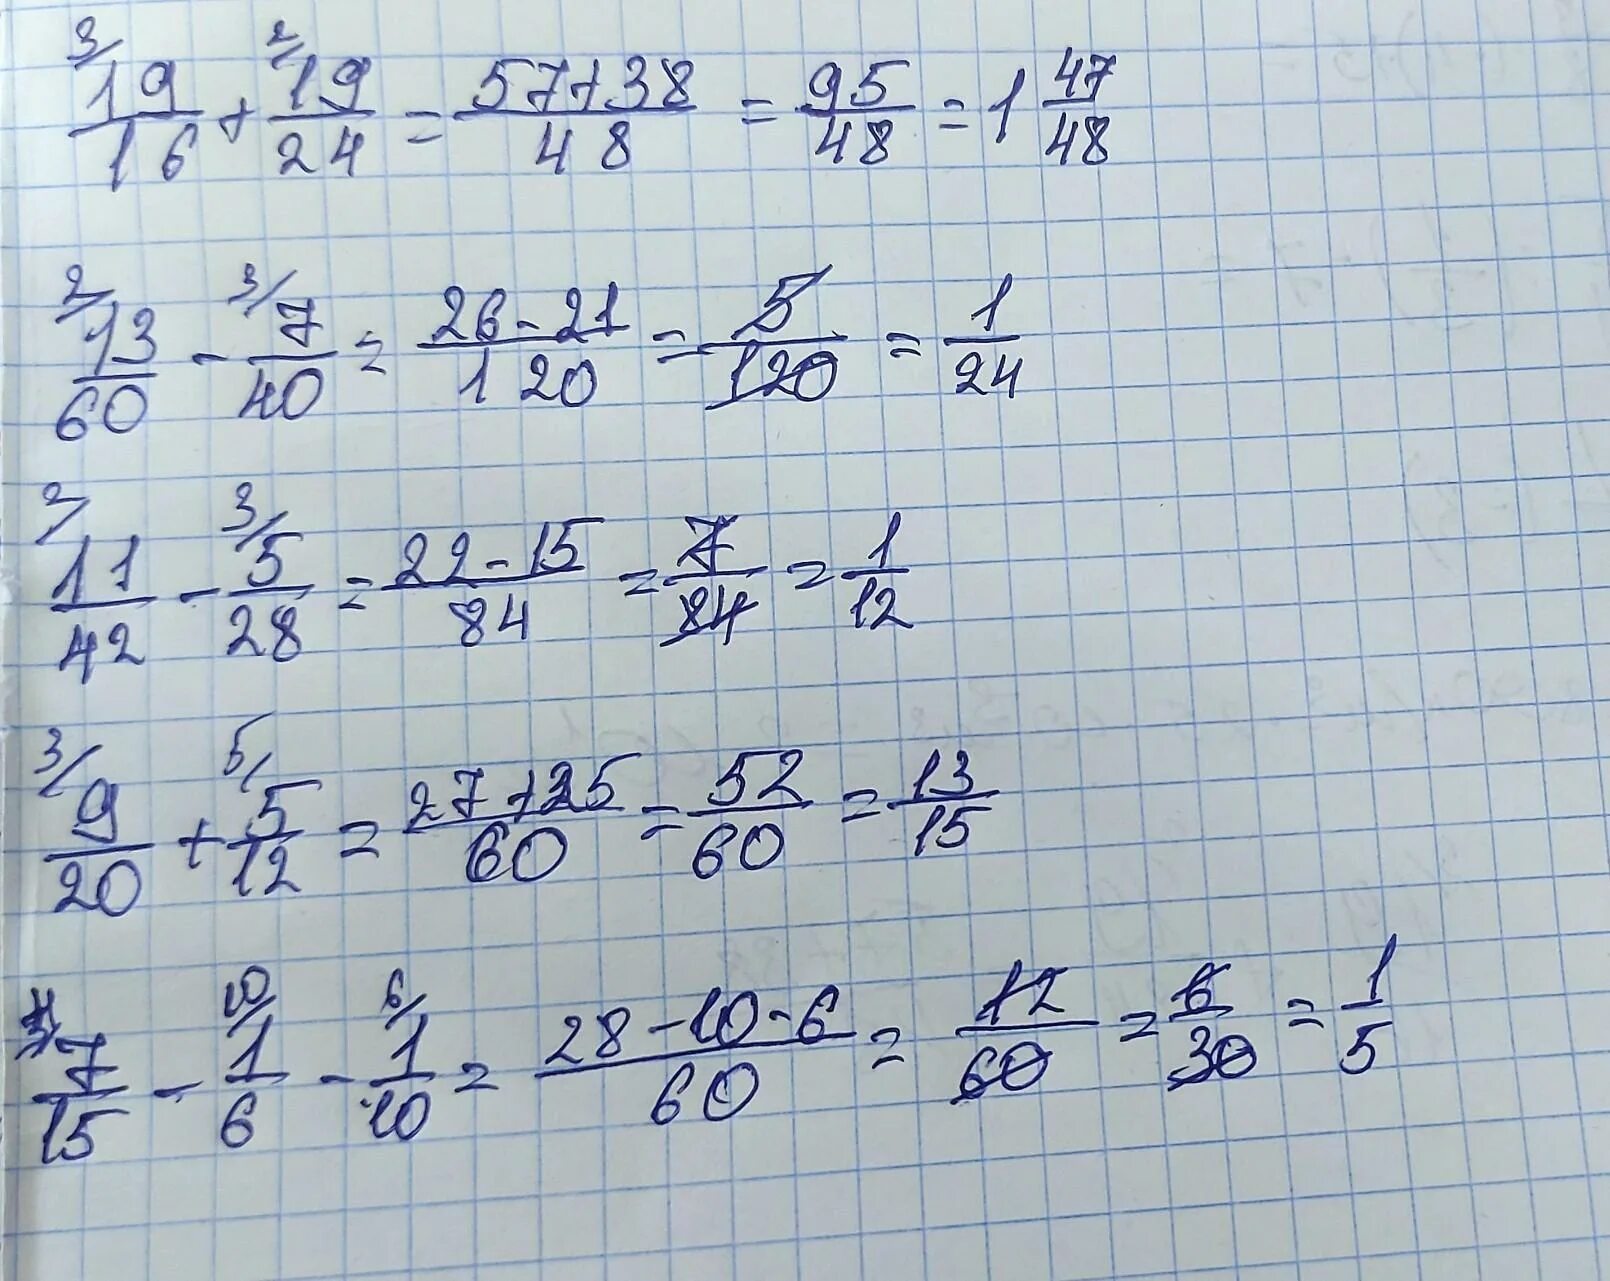 3/19/16 + 2/19/24 = 57+38/48 = 95/48 = 1 47/48
2/13/60 - 3/7/40 = 26-21/120 = 5/120 = 1/24
2/11/42 - 3/5/28 = 22-15/84 = 7/84 = 1/12
3/9/20 + 5/5/12 = 27+25/60 = 52/60 = 13/15
4/7/15 - 10/1/6 - 6/1/10 = 28-10-6/60 = 12/60 = 6/30 = 1/5